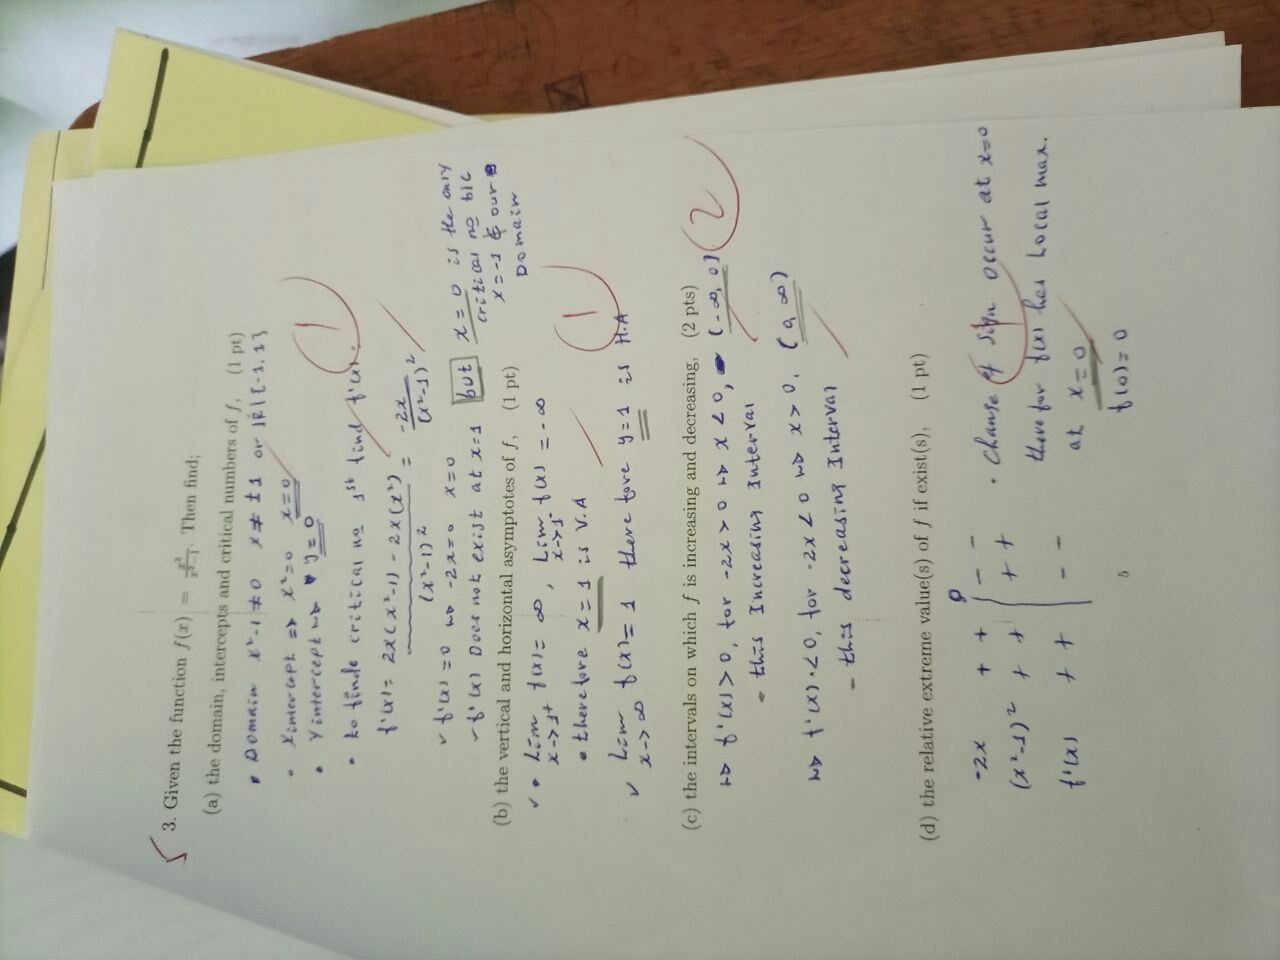 3. Given the function f(x) = x²/(x²-1). Then find;
(a) the domain, intercepts and critical numbers of f, (1 pt)
• Domain x²-1 ≠ 0 x ≠ ±1 or ℝ\{-1,1}
• x intercept => x²=0 x=0
• y intercept => y=0
1
• to finde critical no 1st find f'(x).
f'(x) = 2x(x²-1) - 2x(x²) / (x²-1)² = -2x / (x²-1)²
✓ f'(x)=0 => -2x=0 x=0
- f'(x) Does not exist at x=1 but x=0 is the only
critical no b/c
x=-1 ∉ our
Domain
(b) the vertical and horizontal asymptotes of f, (1 pt)
✓ • Lim x->1+ f(x) = ∞, Lim x->1- f(x) = -∞
• therefore x=1 is V.A
1
✓ Lim x->∞ f(x) = 1 therefore y=1 is H.A
(c) the intervals on which f is increasing and decreasing, (2 pts)
=> f'(x) > 0, for -2x > 0 => x < 0, (-∞, 0)
2
- this Increasing Interval
=> f'(x) < 0, for -2x < 0 => x > 0. (0, ∞)
- this decreasing Interval
(d) the relative extreme value(s) of f if exist(s), (1 pt)
0
-2x + + - -
(x²-1)² + + + +
f'(x) + + - -
• Change of sign occur at x=0
therefor f(x) has Local max.
at x=0
f(0)=0
5